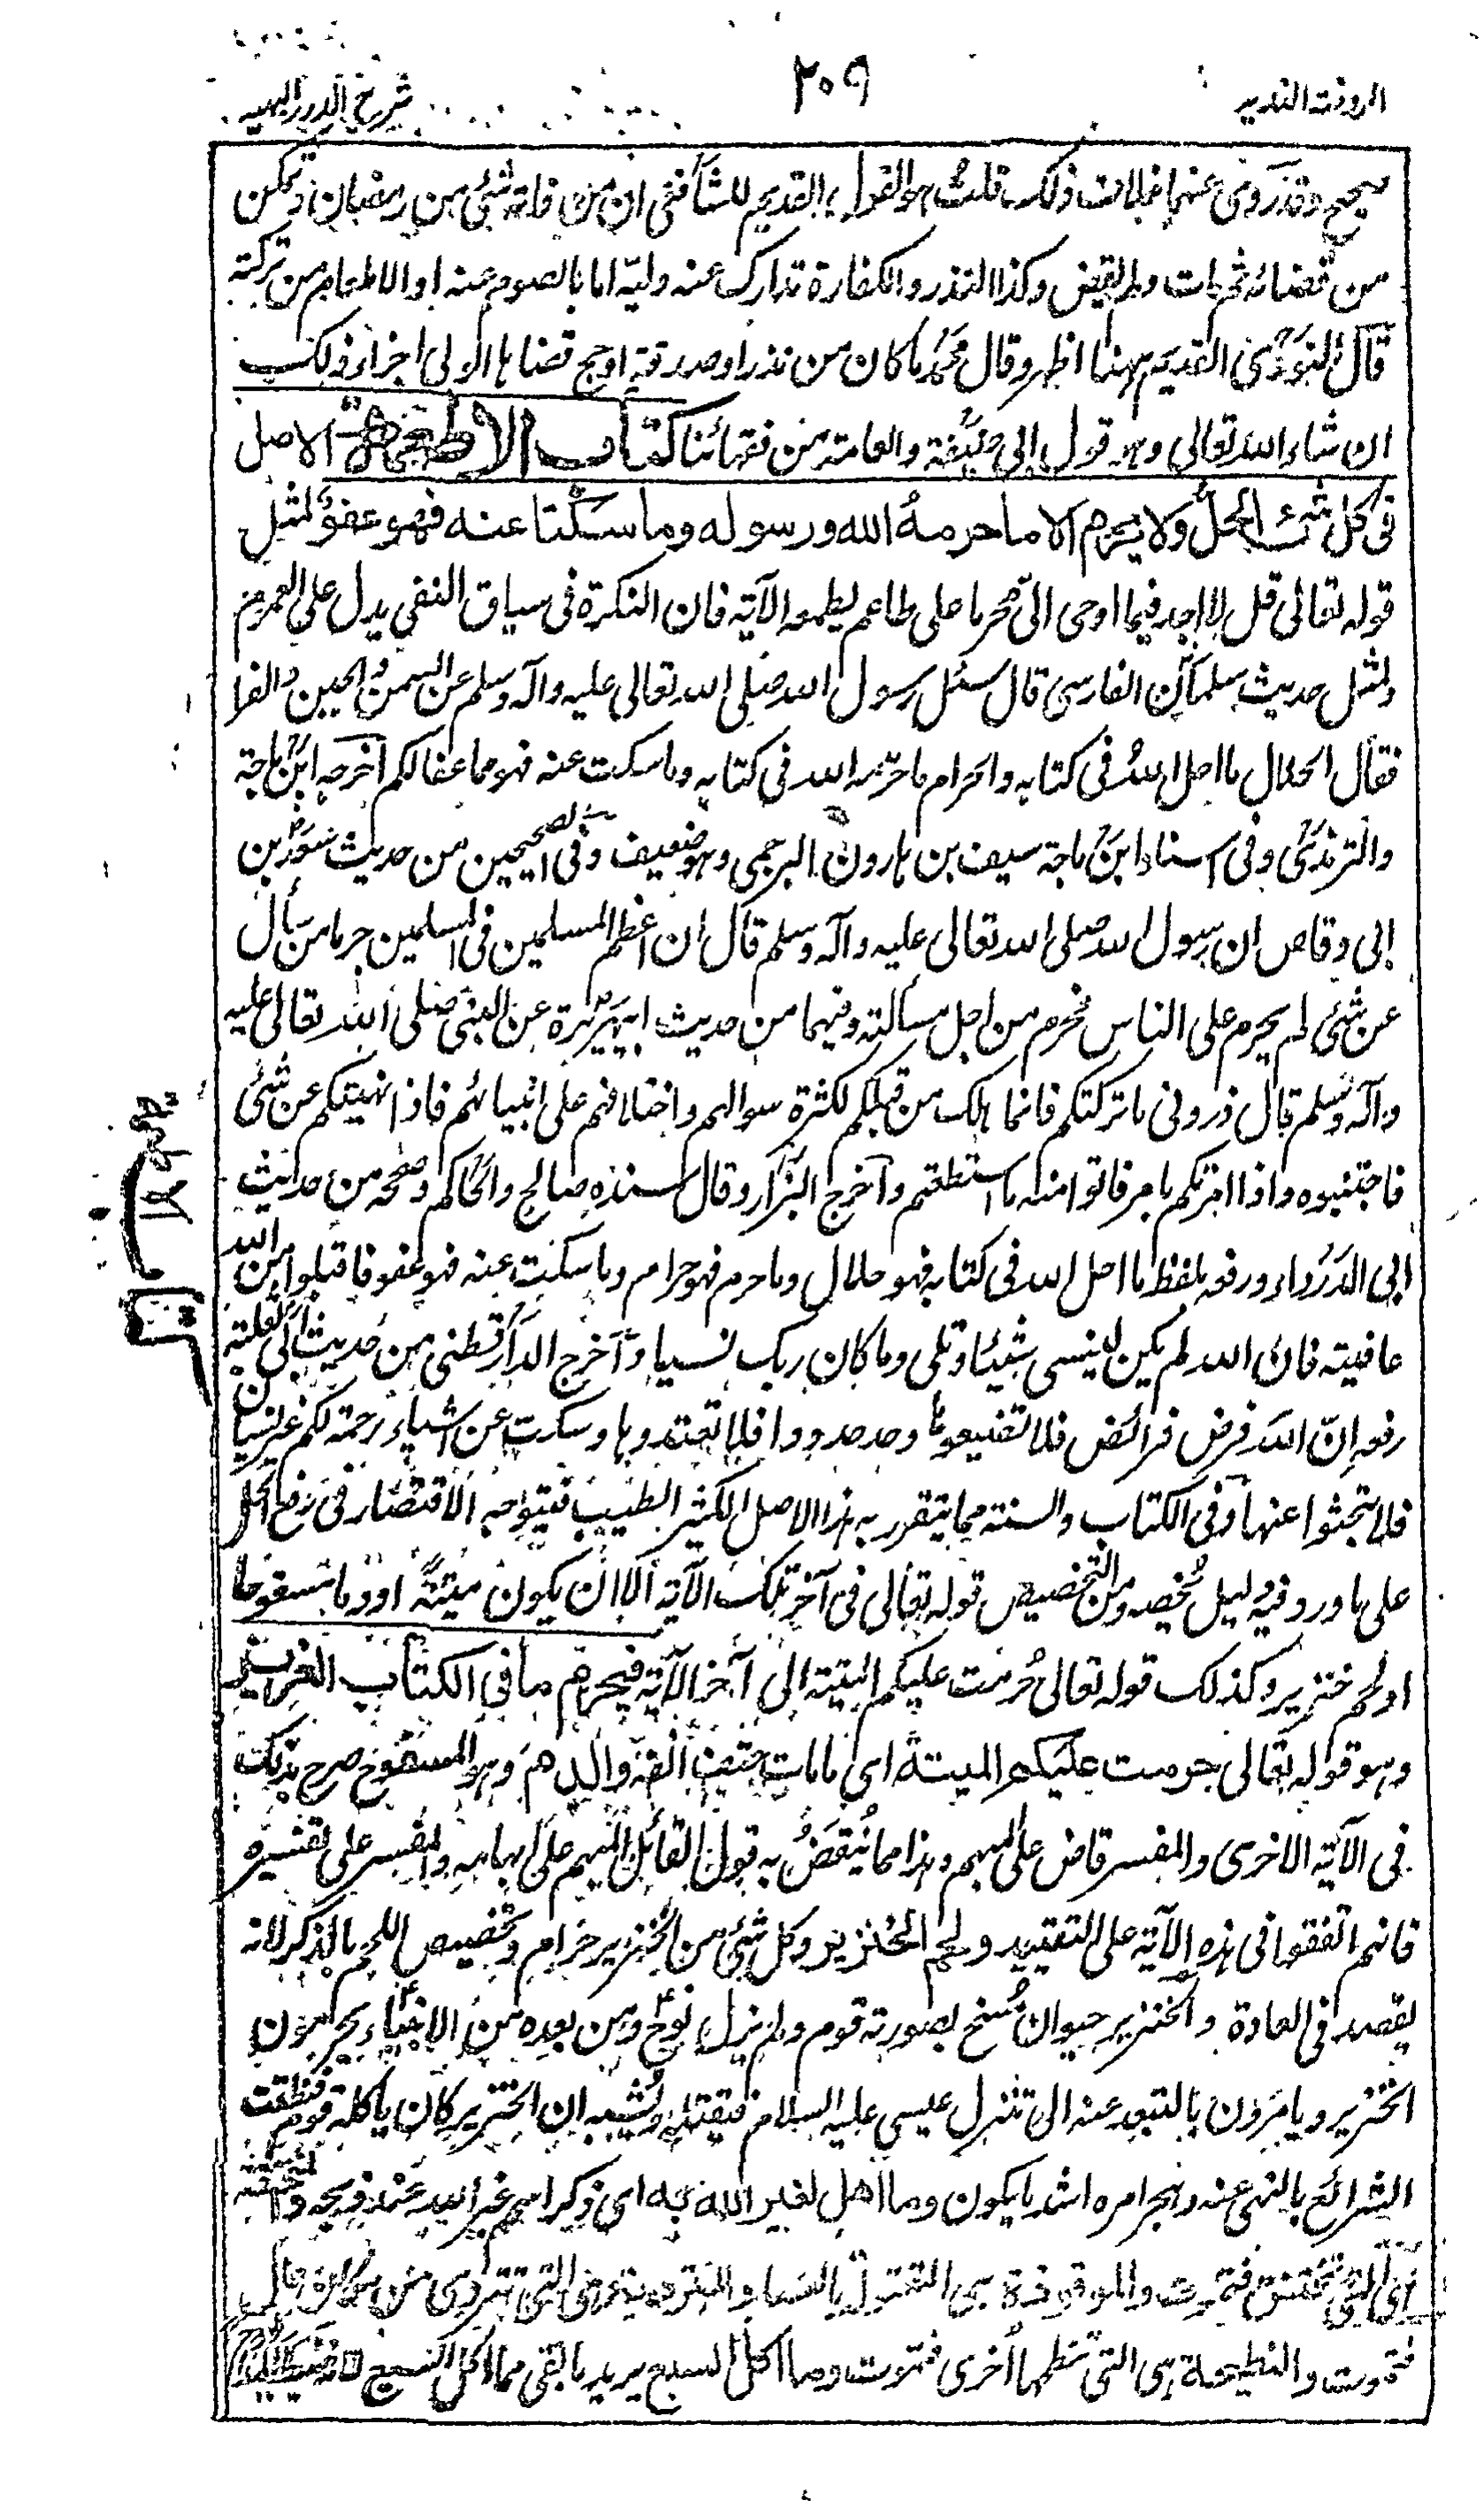 الروضة الندية
٢٠٩
شرح الدرر البهية
صحيح وقد روى عنهما خلاف ذلك قلت هو القول القديم للشافعي ان من فاته شئ من رمضان وتمكن
من قضائه ثم مات ولم يقض وكذا النذر والكفارة تدارك عنه وليه اما بالصوم عنه او الاطعام من تركته
قال النووي القديم ههنا اظهر وقال محمد ما كان من نذر او صدقة او حج قضاها الولى اجزاء ذلك
ان شاء الله تعالى وهو قول ابى حنيفة والعامة من فقهائنا كتاب الاطعمة الاصل
فى كل شئ الحل ولا يحرم الا ما حرمه الله ورسوله وما سكتا عنه فهو عفو لمثل
قوله تعالى قل لا اجد فيما اوحى الىّ محرما على طاعم يطعمه الآية فان النكرة فى سياق النفي يدل على العموم
ولمثل حديث سلمان الفارسى قال سئل رسول الله صلى الله تعالى عليه وآله وسلم عن السمن والجبن والفرا
فقال الحلال ما احل الله فى كتابه والحرام ما حرّمه الله فى كتابه وما سكت عنه فهو مما عفا لكم اخرجه ابن ماجة
والترمذى وفى اسناد ابن ماجة سيف بن هارون البرجمى وهو ضعيف وفى الصحيحين من حديث سعد بن
ابى وقاص ان رسول الله صلى الله تعالى عليه وآله وسلم قال ان اعظم المسلمين فى المسلمين جرما من سأل
عن شئ لم يحرم على الناس فحرم من اجل مسألته وفيهما من حديث ابى هريرة عن النبى صلى الله تعالى عليه
وآله وسلم قال ذرونى ما تركتكم فانما هلك من قبلكم لكثرة سوالهم واختلافهم على انبيائهم فاذا نهيتكم عن شئ
فاجتنبوه واذا امرتكم بامر فاتوا منه ما استطعتم وآخرج البزار وقال سنده صالح والحاكم وصححه من حديث
ابى الدرداء ورفعه بلفظ ما احل الله فى كتابه فهو حلال وما حرم فهو حرام وما سكت عنه فهو عفو فاقبلوا من الله
عافيته فان الله لم يكن لينسى شيئا وتلى وما كان ربك نسيا وآخرج الدارقطنى من حديث ابى ثعلبة
رفعه انّ الله فرض فرائض فلا تضيعوها وحد حدودا فلا تعتدوها وسكت عن اشياء رحمة لكم غير نسيان
فلا تبحثوا عنها وفى الكتاب والسنة مما يتقرر به هذا الاصل الكثير الطيب فيتوجه الاقتصار فى رفع الحل
على ما ورد فيه دليل يخصه ومن التخصيص قوله تعالى فى آخر تلك الآية الا ان يكون ميتةً او دما مسفوحا
او لحم خنزير وكذلك قوله تعالى حُرمت عليكم الميتة الى آخر الآية فيحرم ما فى الكتاب العزيز
وهو قوله تعالى حرمت عليكم الميتة اى ما مات حتف انفه والدم وهو المسفوح صرح بذلك
فى الآية الاخرى والمفسر قاض على المبهم وهذا مما يُنقَضُ به قول القائل المبهم على ابهامه والمفسر على تفسيره
فانهم اتفقوا فى هذه الآية على التقييد ولحم الخنزير وكل شئ من الخنزير حرام وتخصيص اللحم بالذكر لانه
يقصد فى العادة والخنزير حيوان مُسخ بصورته قوم ولم يزل نوح ومن بعده من الانبياء يحرمون
الخنزير ويامرون بالتبعد عنه الى ان ينزل عيسى عليه السلام فيقتله ويُشبه ان الخنزير كان ياكله قوم فنطقت
الشرائع بالنهى عنه وهجر امره اشد ما يكون وما اهل لغير الله به اى ذكر اسم غير الله عند ذبحه والمنخنقة
اى التى تختنق فتموت والموقوذة هى التى تقتل بالعصا والمتردية هى التى تتردى من مكان عال
فتموت والنطيحة هى التى تنطحها اخرى فتموت وما اكل السبع يريد ما بقى مما اكل السبع